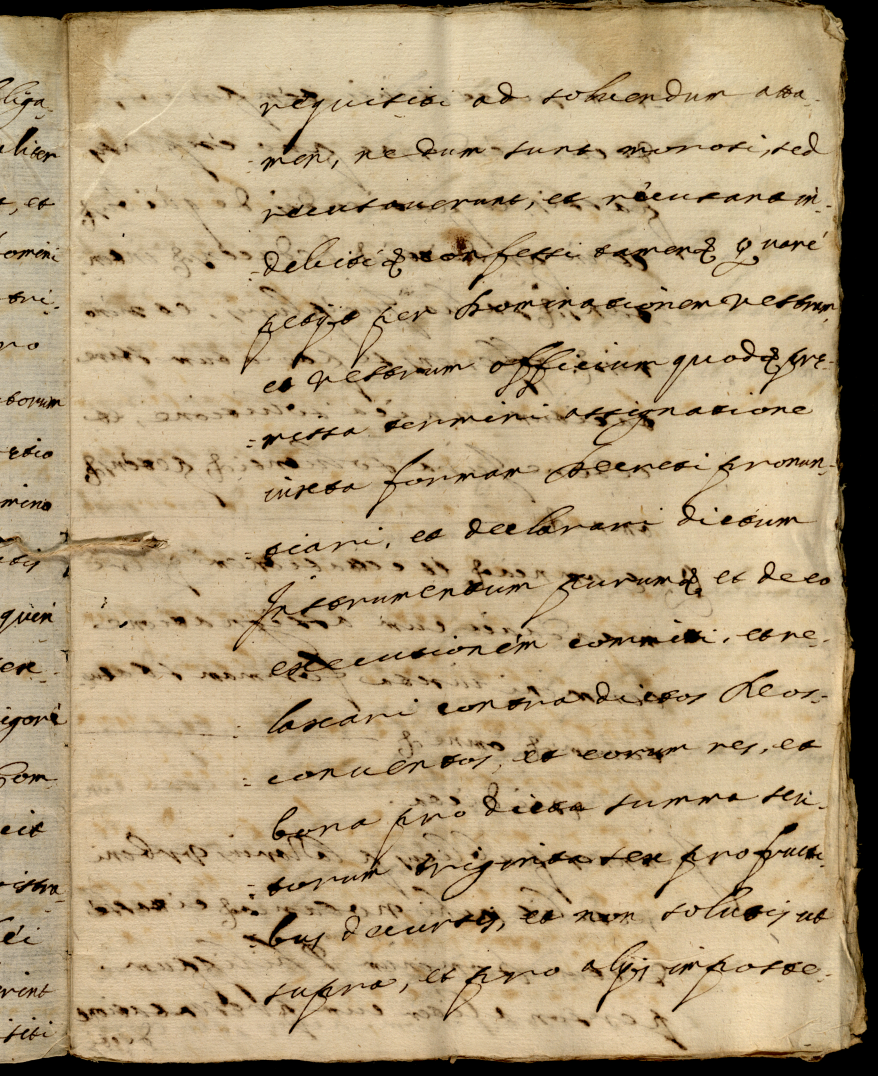 liga-
aliter
t, et
Domini
tri-
pro
torum
etio
mino
tis
quen
ter
igore
Dom
cit
istra
lei
rint
isiti
requisiti ad solvendum atta-
-men, nedum sunt morosi, sed
recusaverunt, et recusant in-
-debite &c. confessi tamen &c. quare
petijt per Dominationem vestram,
et vestrum officium quod &c. pre-
-missa termini assignatione
iuxta formam Decreti pronun-
-tiari, et declarari dictum
Instrumentum purum &c. et de eo
executionem committi, et re-
laxari contra dictos Reos-
-conventos, et eorum res, et
bona pro dicta summa scu-
-torum triginta sex pro fructi-
-bus decursis, et non solutis ut
supra, et pro alijs in poste-